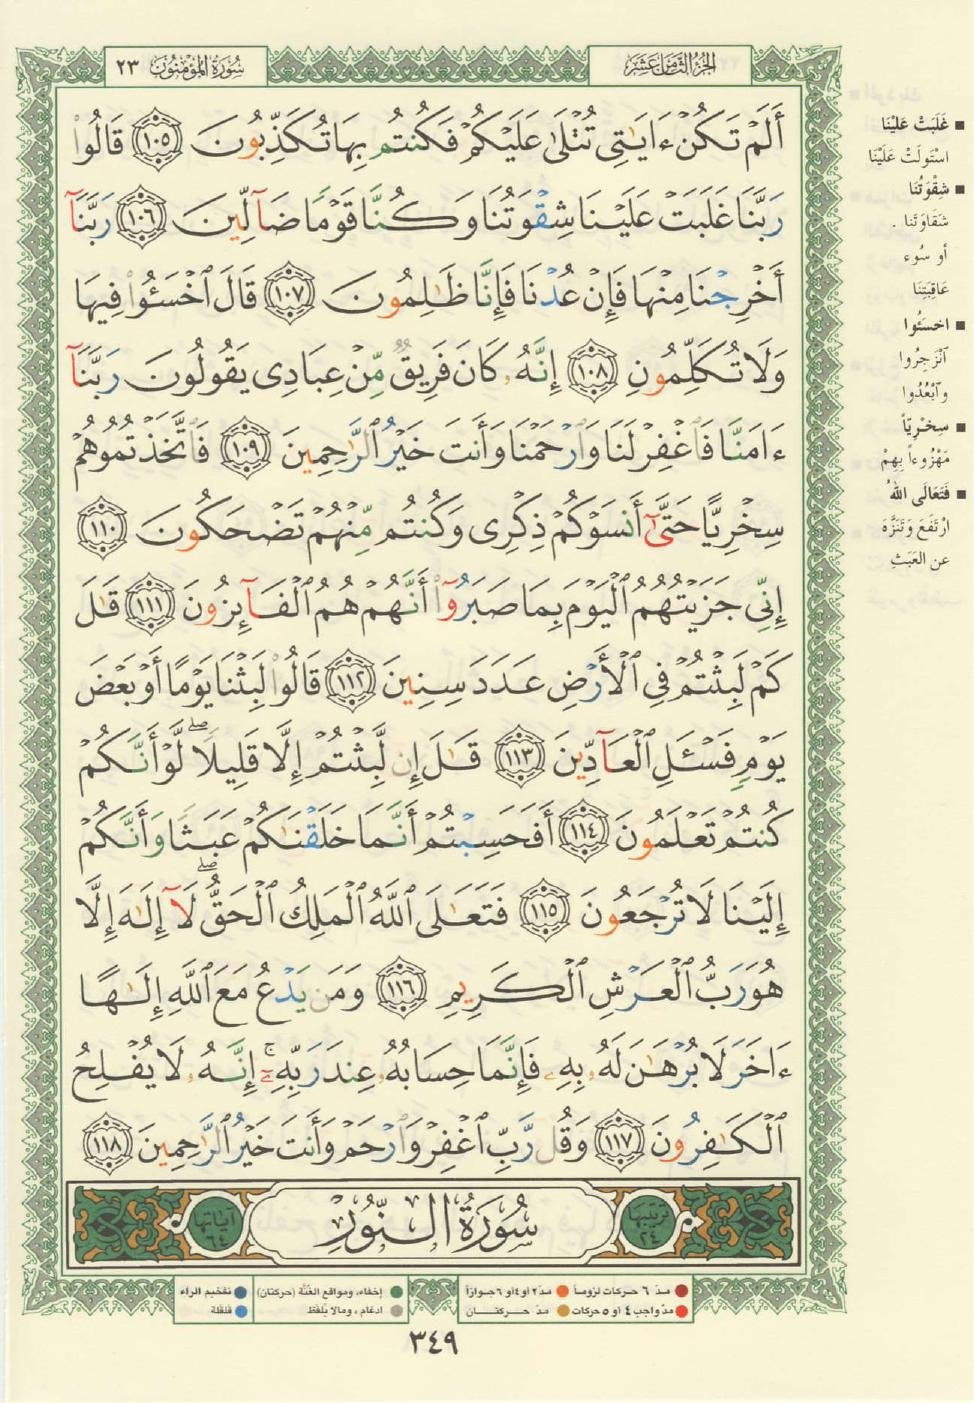 الجزء الثامن عشر
سورة المؤمنون ٢٣
أَلَمْ تَكُنْ ءَايَٰتِى تُتْلَىٰ عَلَيْكُمْ فَكُنتُم بِهَا تُكَذِّبُونَ ١٠٥ قَالُوا۟
رَبَّنَا غَلَبَتْ عَلَيْنَا شِقْوَتُنَا وَكُنَّا قَوْمًا ضَآلِّينَ ١٠٦ رَبَّنَآ
أَخْرِجْنَا مِنْهَا فَإِنْ عُدْنَا فَإِنَّا ظَٰلِمُونَ ١٠٧ قَالَ ٱخْسَـُٔوا۟ فِيهَا
وَلَا تُكَلِّمُونِ ١٠٨ إِنَّهُۥ كَانَ فَرِيقٌ مِّنْ عِبَادِى يَقُولُونَ رَبَّنَآ
ءَامَنَّا فَٱغْفِرْ لَنَا وَٱرْحَمْنَا وَأَنتَ خَيْرُ ٱلرَّٰحِمِينَ ١٠٩ فَٱتَّخَذْتُمُوهُمْ
سِخْرِيًّا حَتَّىٰٓ أَنسَوْكُمْ ذِكْرِى وَكُنتُم مِّنْهُمْ تَضْحَكُونَ ١١٠
إِنِّى جَزَيْتُهُمُ ٱلْيَوْمَ بِمَا صَبَرُوٓا۟ أَنَّهُمْ هُمُ ٱلْفَآئِزُونَ ١١١ قَٰلَ
كَمْ لَبِثْتُمْ فِى ٱلْأَرْضِ عَدَدَ سِنِينَ ١١٢ قَالُوا۟ لَبِثْنَا يَوْمًا أَوْ بَعْضَ
يَوْمٍ فَسْـَٔلِ ٱلْعَآدِّينَ ١١٣ قَٰلَ إِن لَّبِثْتُمْ إِلَّا قَلِيلًا ۖ لَّوْ أَنَّكُمْ
كُنتُمْ تَعْلَمُونَ ١١٤ أَفَحَسِبْتُمْ أَنَّمَا خَلَقْنَٰكُمْ عَبَثًا وَأَنَّكُمْ
إِلَيْنَا لَا تُرْجَعُونَ ١١٥ فَتَعَٰلَى ٱللَّهُ ٱلْمَلِكُ ٱلْحَقُّ ۖ لَآ إِلَٰهَ إِلَّا
هُوَ رَبُّ ٱلْعَرْشِ ٱلْكَرِيمِ ١١٦ وَمَن يَدْعُ مَعَ ٱللَّهِ إِلَٰهًا
ءَاخَرَ لَا بُرْهَٰنَ لَهُۥ بِهِۦ فَإِنَّمَا حِسَابُهُۥ عِندَ رَبِّهِۦٓ ۚ إِنَّهُۥ لَا يُفْلِحُ
ٱلْكَٰفِرُونَ ١١٧ وَقُل رَّبِّ ٱغْفِرْ وَٱرْحَمْ وَأَنتَ خَيْرُ ٱلرَّٰحِمِينَ ١١٨
ترتيبها ٢٤
سُورَةُ النُّورِ
آياتها ٦٤
■ غَلَبَتْ عَلَيْنَا
اسْتَولَتْ عَلَيْنَا
■ شِقْوَتُنَا
شَقَاوَتُنَا .
أو سُوء
عَاقِبَتِنَا
■ اخسَئُوا
انْزَجِرُوا
وَابْعُدُوا
■ سِخْرِيّاً
مَهْزُوءاً بِهِمْ
■ فَتَعَالَى اللهُ
ارْتَفَعَ وَتَنَزَّهَ
عن العَبَثِ
مدّ ٦ حركات لزوماً ● مدّ ٢ أو ٤ أو ٦ جوازاً
مدّ واجب ٤ أو ٥ حركات ● مدّ حركتان
إخفاء، ومواقع الغُنَّة (حركتان) ● تفخيم الراء
ادغام ، ومالا يُلفَظ ● قلقلة
٣٤٩